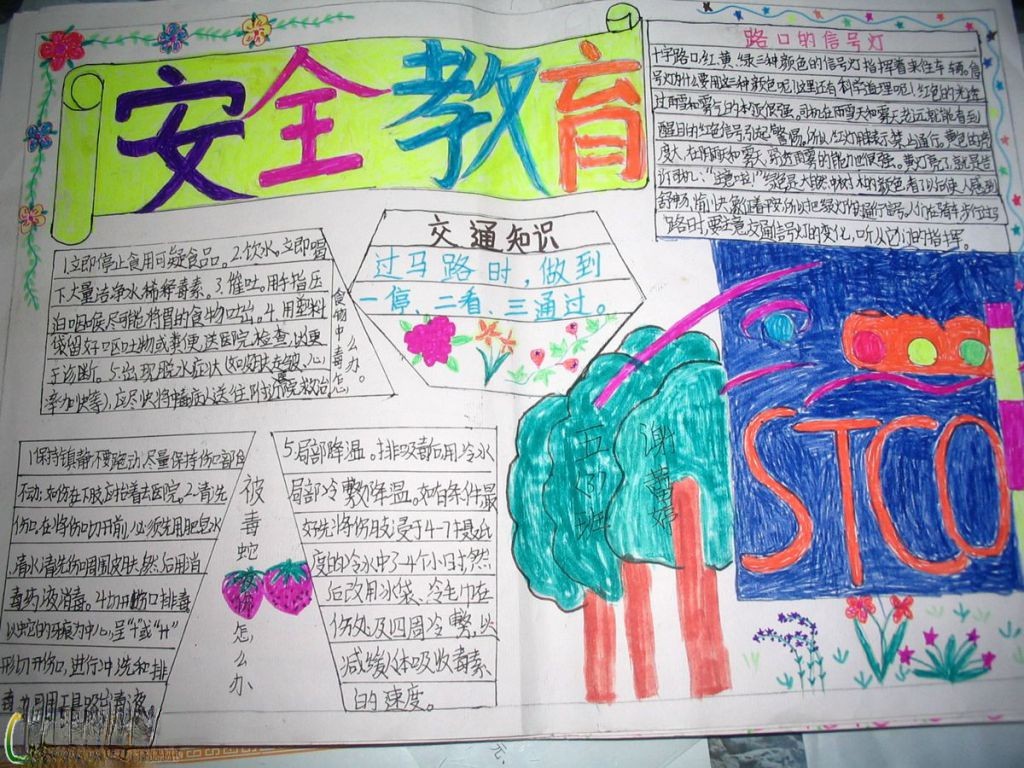 安全教育
路口的信号灯
十字路口红、黄、绿三种颜色的信号灯指挥着来往车辆。信
号灯为什么要用这三种颜色呢,这里还有科学道理呢!红色的光透
过雨雪和雾气的本领很强。司机在雨雪天和雾天老远就能看到
醒目的红色信号引起警惕。所以红灯用来表示禁止通行。黄色
度大,在阴天和雾天,穿透雨雾的能力也很强。黄灯亮了就是告
诉司机:
绿色是大自然中树木的颜色,看了以后使人感到
路时,要注意交通信号灯的变化,听从它们的指挥。
交通知识
过马路时,做到
一停、二看、三通过。
食物中毒怎么办。
1.立即停止食用可疑食品。2.饮水。立即喝
下大量洁净水稀释毒素。3.催吐。用手指压
迫咽喉尽可能将胃的食物吐出。4.用塑料
袋留好呕吐物或粪便,送医院检查,以便
于诊断。5.出现脱水症状(如皮肤起皱、心
率加快等),应尽快将病人送往附近医院救治。
被毒蛇咬怎么办
1.保持镇静不要跑动,尽量保持伤口部位
不动,如伤在下肢应抬着去医院。2.清洗
伤口。在将伤口切开前,必须先用肥皂水
清水清洗伤口周围皮肤,然后用消
毒药液消毒。4.切开伤口排毒
以蛇的牙痕为中心,呈"十"或"H"
形切开伤口,进行冲洗和排
5.局部降温。排吸毒后用冷水
局部冷敷降温。如有条件最
好先将伤肢浸于4-7摄氏
度的冷水中3-4个小时,然
后改用冰袋、冷毛巾在
伤处及四周冷敷,以
减缓人体吸收毒素
的速度。
五(3)班
谢
STCO